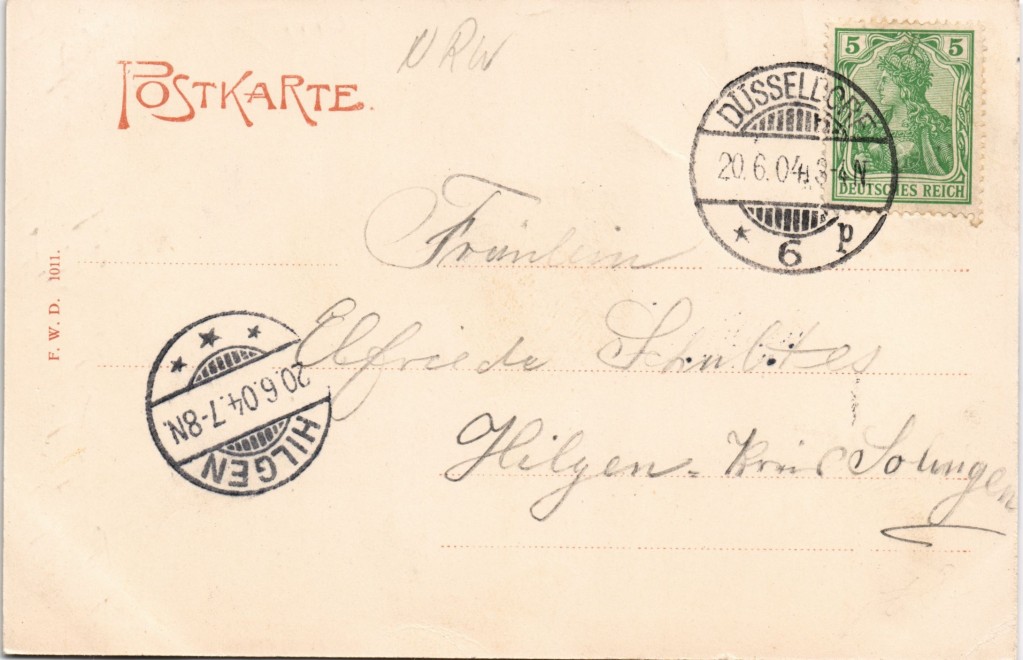 NRW
POSTKARTE.
5 5
DEUTSCHES REICH
DÜSSELDORF
20.6.04.3-4N
* 6 p
F. W. D. 1011.
Fräulein
Elfriede Schultes
Hilgen - Kreis Solingen
20.6.04.7-8N.
HILGEN